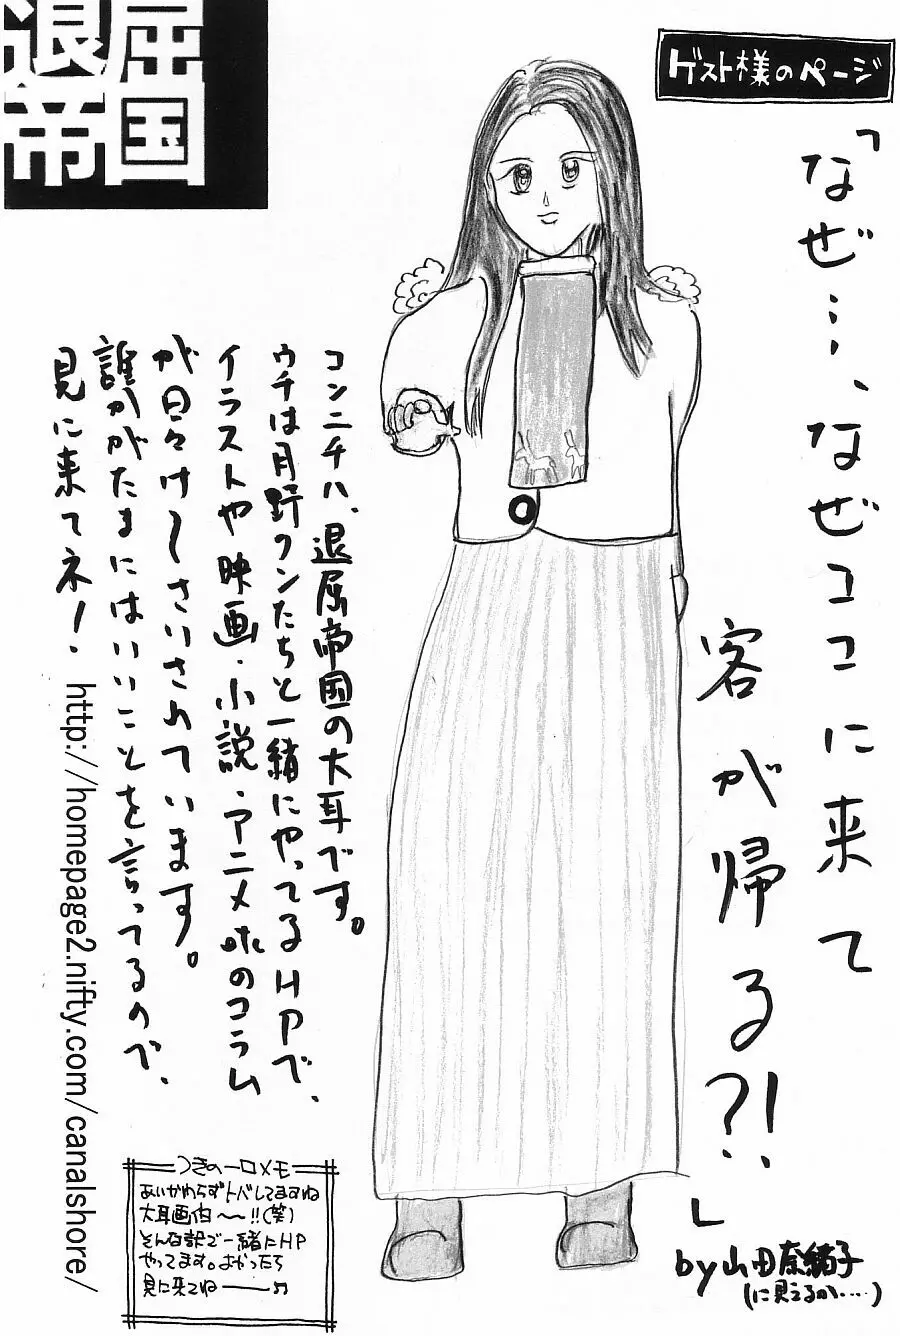 退屈
帝国
ゲスト様のページ
「なぜ…、なぜココに来て
客が帰る?!」
by山田奈緒子
(に見えるか……)
コンニチハ、退屈帝国の大耳です。
ウチは月野クンたちと一緒にやってるHPで、
イラストや映画・小説・アニメetcのコラム
が日々けーさいされています。
誰かがたまにはいいことを言ってるので、
見に来てネ!
http://homepage2.nifty.com/canalshore/
つきの一口メモ
あいかわらずトバしてますね
大耳画伯〜〜!!(笑)
そんな訳で一緒にHP
やってます。よかったら
見に来てね――♫